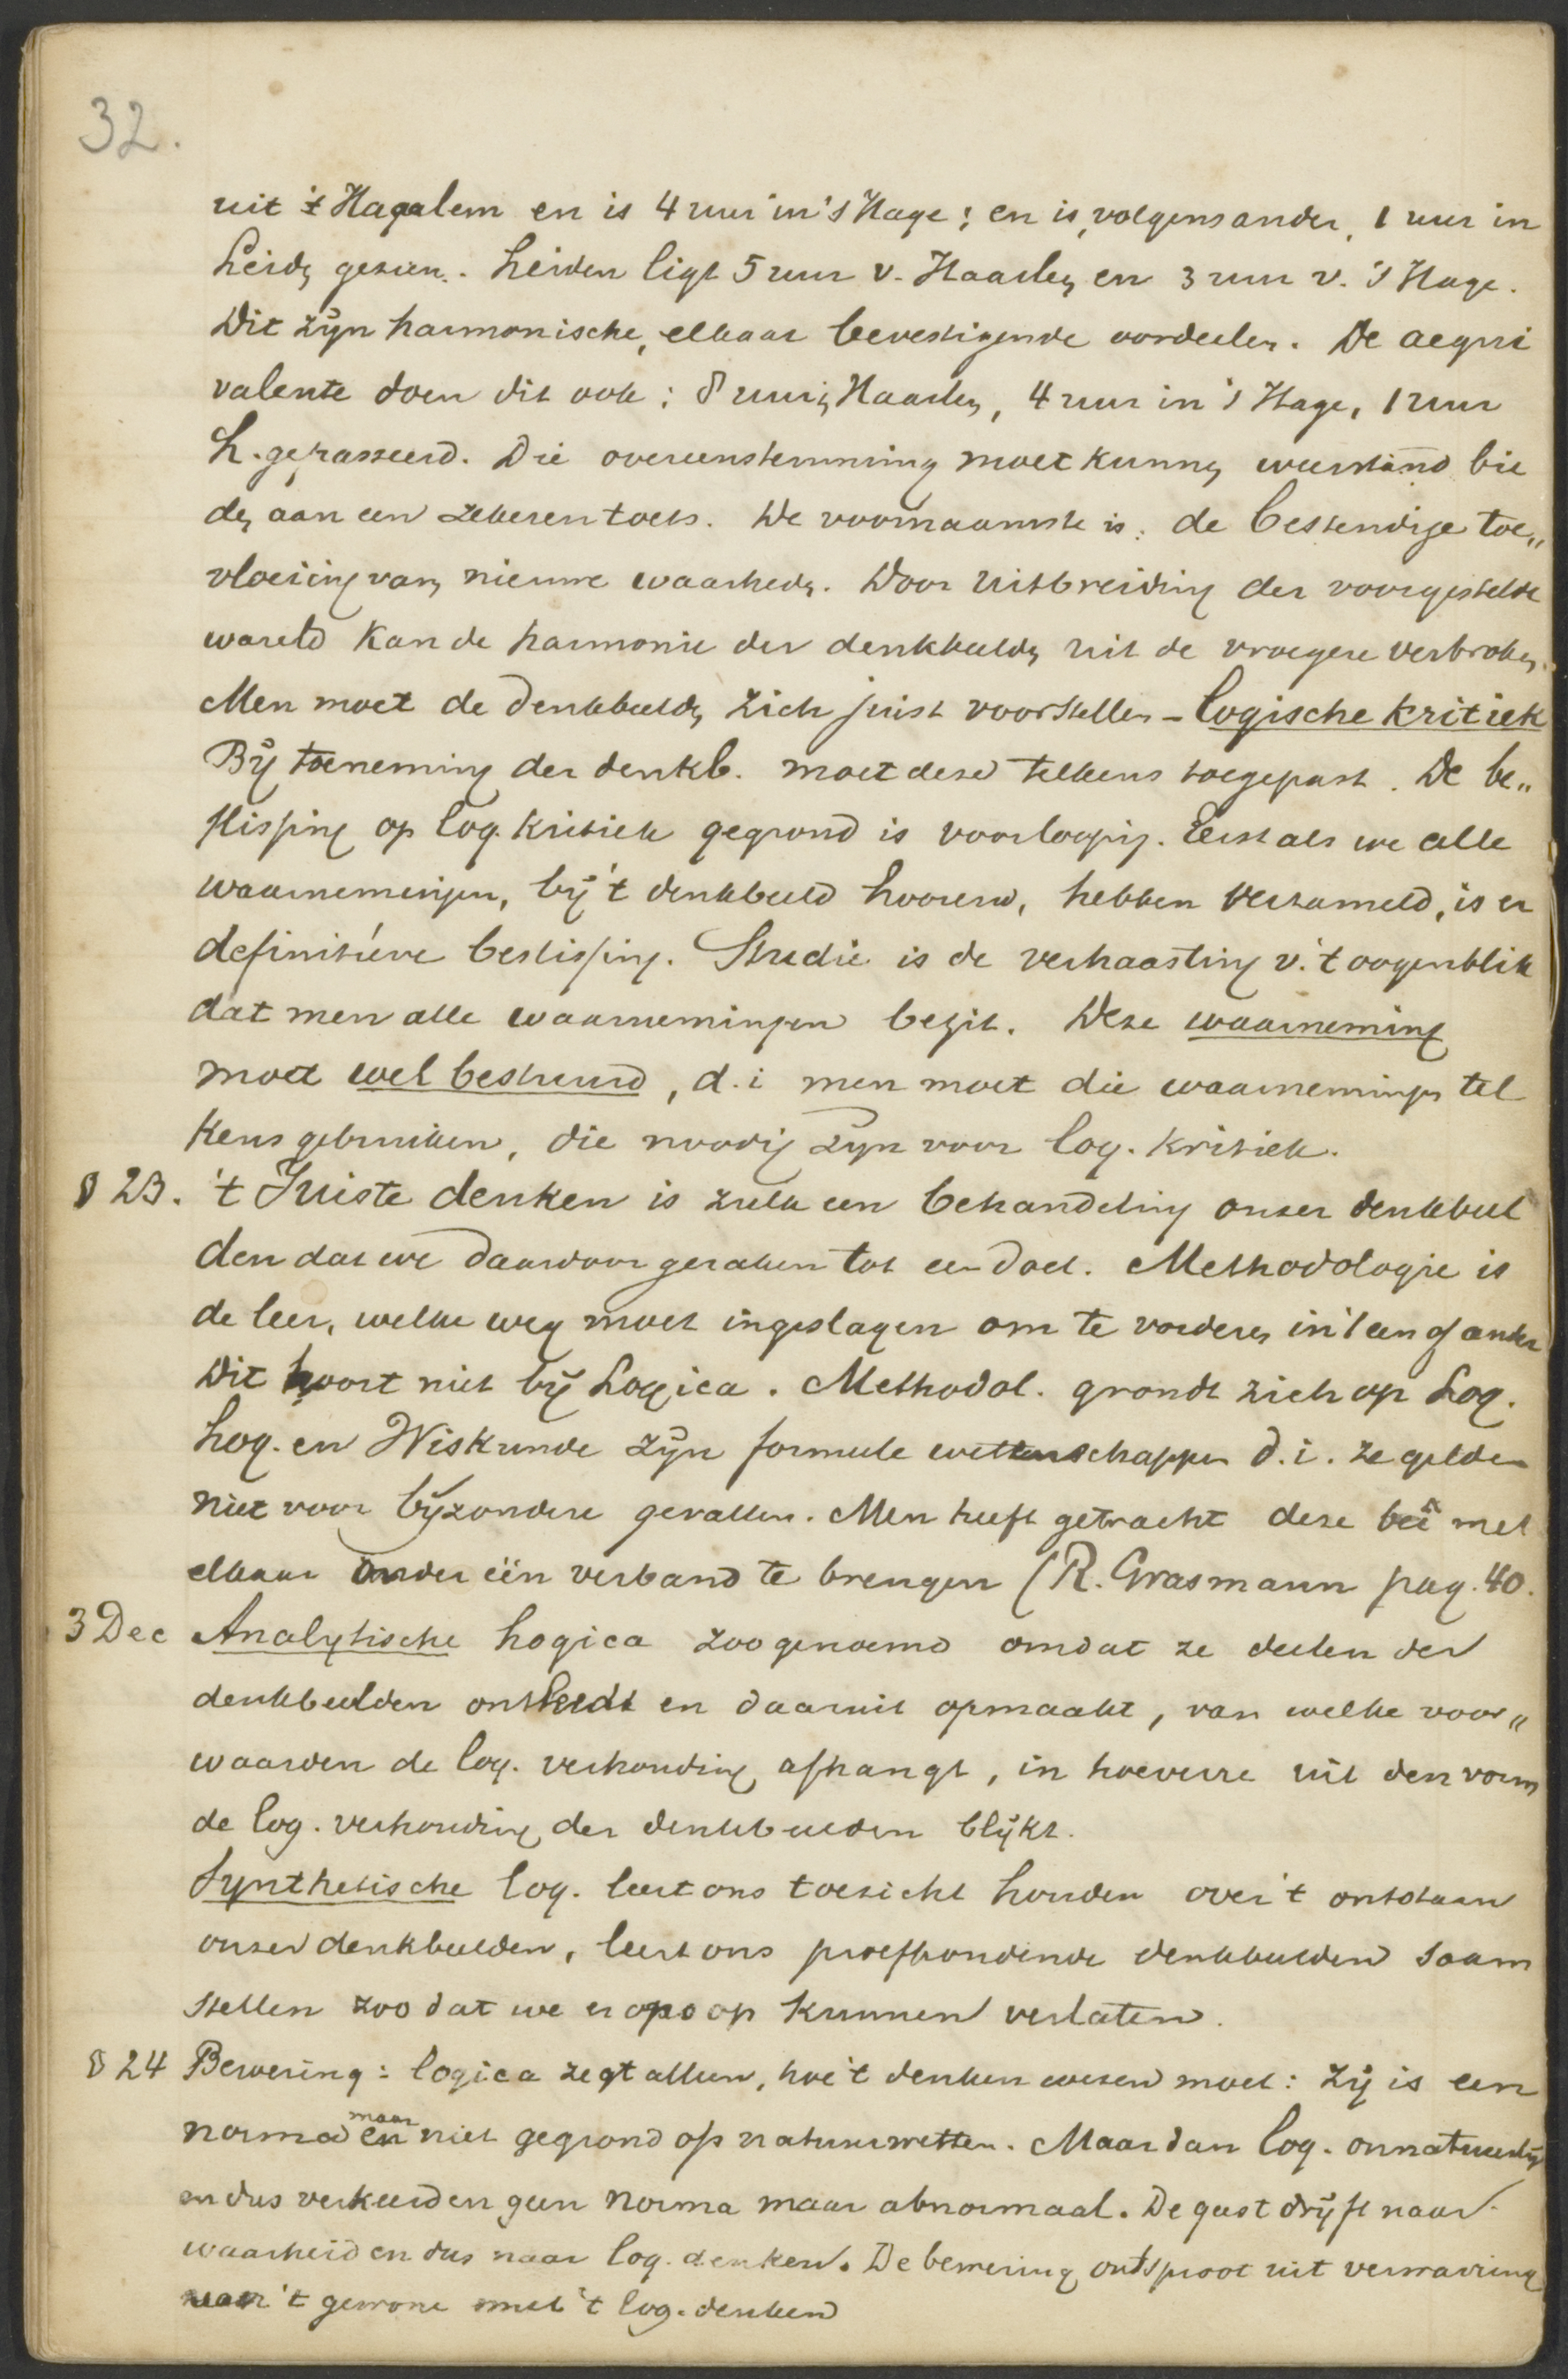 32.
uit 't Haarlem en is 4 uur in 's Hage; en is, volgens ander, 1 uur in
Leidn gezien. Leiden ligt 5 uur v. Haarlen en 3 uur v. 's Hage.
Dit zijn harmonische, elkaar bevestigende oordeelen. De aequi
valente doen dit ook: 8 uur in Haarlen, 4 uur in 's Hage, 1 uur
L. gepasseerd. Die overeenstemming moet kunnen weerstand bie
den aan een zekeren toets. De voornaamste is: de bestendige toe„
vloeiing van nieuwe waarheden. Door uitbreiding der voorgestelde
wareld kan de harmonie der denkbeelden uit de vroegere verbroken.
Men moet de denkbeelden zich juist voorstellen - logische kritiek
Bij toeneming der denkb. moet deze telkens toegepast. De be„
slissing op log. kritiek gegrond is voorloopig. Eerst als we alle
waarnemingen, bij 't denkbeeld hoorend, hebben verzameld, is er
definitieve beslissing. Studie is de verhaasting v. 't oogenblik
dat men alle waarnemingen bezit. Deze waarneming
moet wel bestuurd, d.i men moet die waarnemingen tel
kens gebruiken, die noodig zijn voor log. kritiek.
§ 23. 't Juiste denken is zulk een behandeling onzer denkbeel
den dat we daardoor geraken tot een doel. Methodologie is
de leer, welke weg moet ingeslagen om te vorderen in 't een of ander
Dit hoort niet bij Logica. Methodol. grondt zich op Log.
Log. en Wiskunde zijn formeele wettenschappen d.i. ze gelden
niet voor bijzondere gevallen. Men heeft getracht deze bei met
elkaar onder één verband te brengen (R. Grasmann pag. 40.
3 Dec Analytische Logica zoo genoemd omdat ze deelen der
denkbeelden ontleedt en daaruit opmaakt, van welke voor„
waarden de log. verhouding afhangt, in hoeverre uit den vorm
de log. verhouding der denkbeelden blijkt.
Synthetische log. leert ons toezicht houden over 't ontstaan
onzer denkbeelden, leert ons proefhoudende denkbeelden saam
stellen zoo dat we er ons op kunnen verlaten.
§ 24 Bewering: logica zegt alleen, hoe 't denken wezen moet: zij is een
norma en maar niet gegrond op natuurwetten. Maar dan log. onnatuurlijk
en dus verkeerd en geen norma maar abnormaal. De geest drijft naar
waarheid en dus naar log. denken. De bewering ontsproot uit verwarring
van 't gewone met 't log. denken